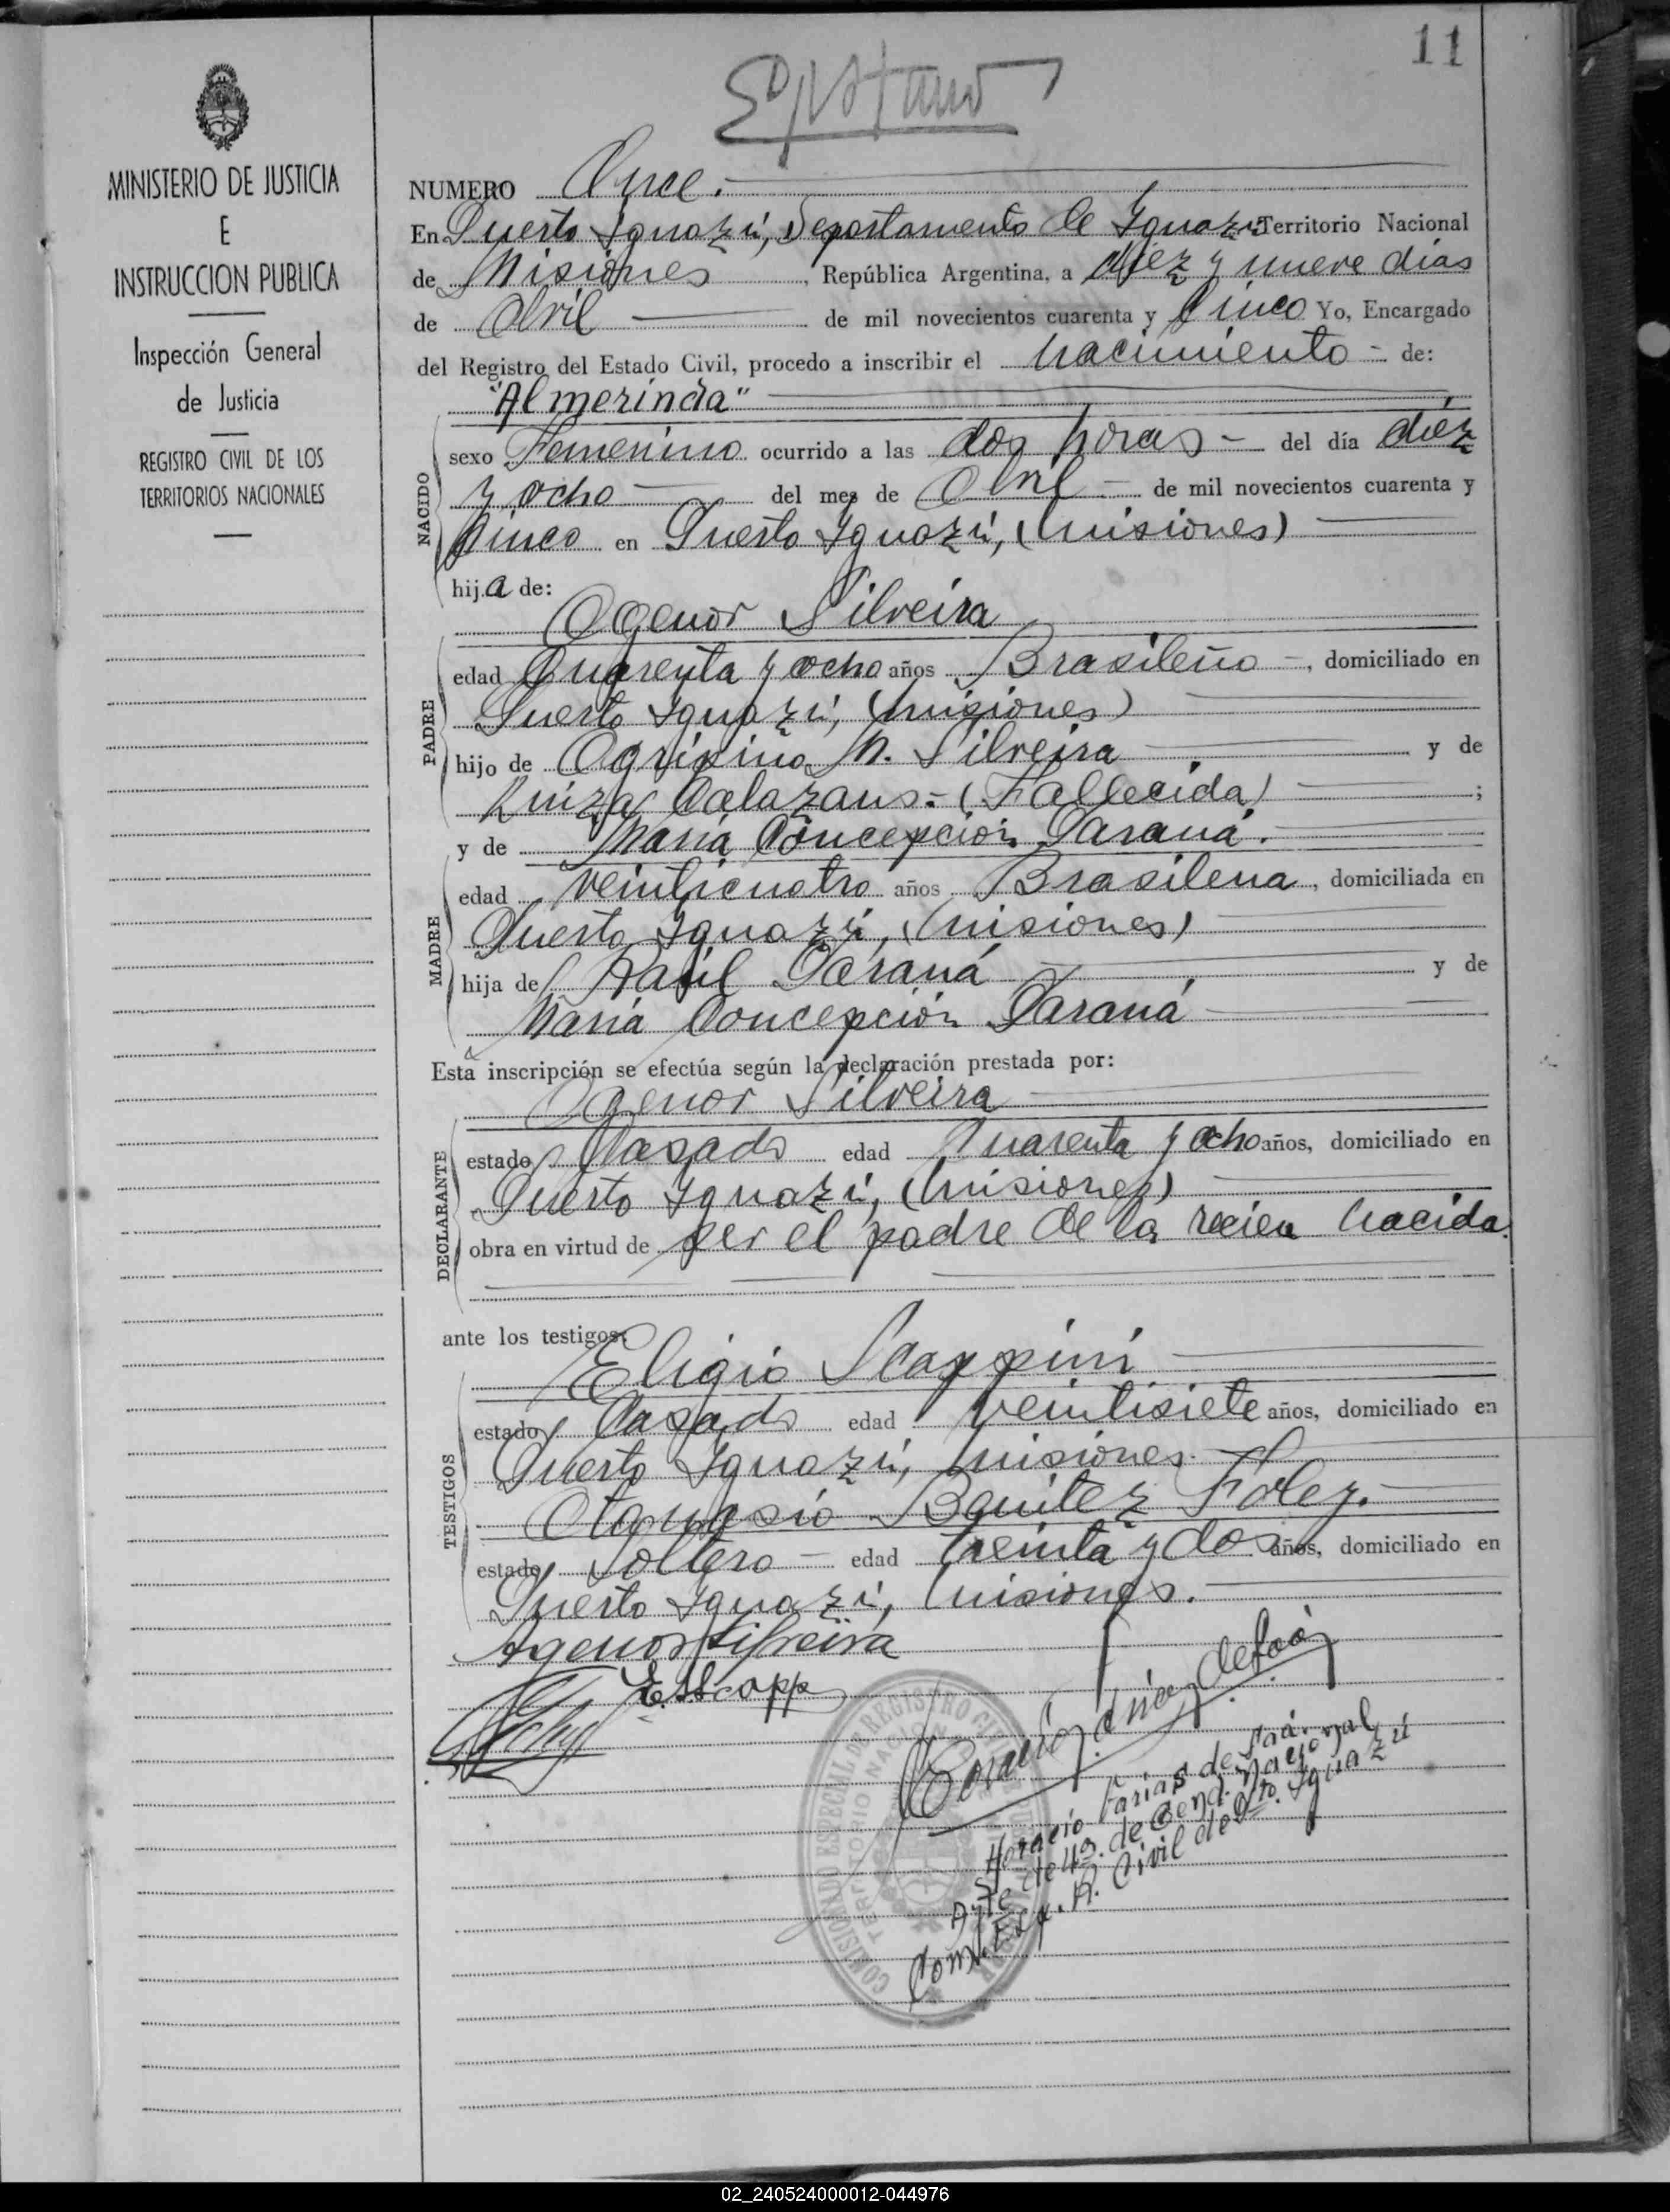 11
MINISTERIO DE JUSTICIA
E
INSTRUCCION PUBLICA
Inspección General
de Justicia
REGISTRO CIVIL DE LOS
TERRITORIOS NACIONALES
NUMERO Once.
En Puerto Iguazú, Departamento de Iguazú Territorio Nacional
de Misiones, República Argentina, a diez y nueve días
de Abril de mil novecientos cuarenta y Cinco Yo, Encargado
del Registro del Estado Civil, procedo a inscribir el nacimiento - de:
"Almerinda"
NACIDO
sexo Femenino ocurrido a las dos horas - del día diéz
y ocho del mes de Abril - de mil novecientos cuarenta y
Cinco en Puerto Iguazú, (Misiones)
hija de:
Agenor Silveira
PADRE
edad Cuarenta y ocho años Brasileño -, domiciliado en
Puerto Iguazú, (Misiones)
hijo de Agripino M. Silveira y de
Luiza Calazans - (Fallecida) ;
y de María Concepción Paraná.
MADRE
edad veinticuatro años Brasilena, domiciliada en
Puerto Iguazú, (Misiones)
hija de Raúl Paraná y de
María Concepción Paraná
Esta inscripción se efectúa según la declaración prestada por:
Agenor Silveira
DECLARANTE
estado Casado edad Cuarenta y ocho años, domiciliado en
Puerto Iguazú, (Misiones)
obra en virtud de ser el padre de la recien nacida.
ante los testigos:
Eligio Scappini
TESTIGOS
estado Casado edad veintisiete años, domiciliado en
Puerto Iguazú, Misiones.
Atanasio Benitez
estado Soltero - edad treinta y dos años, domiciliado en
Puerto Iguazú, Misiones.
Agenor Silveira
E. Scapp
COMISARIADO ESPECIAL DE REGISTRO CIVIL
TERRITORIO NACIONAL
Horacio Farias de Saá.
de Gend. Nacional
R. Civil de Pto. Iguazú
02_240524000012-044976